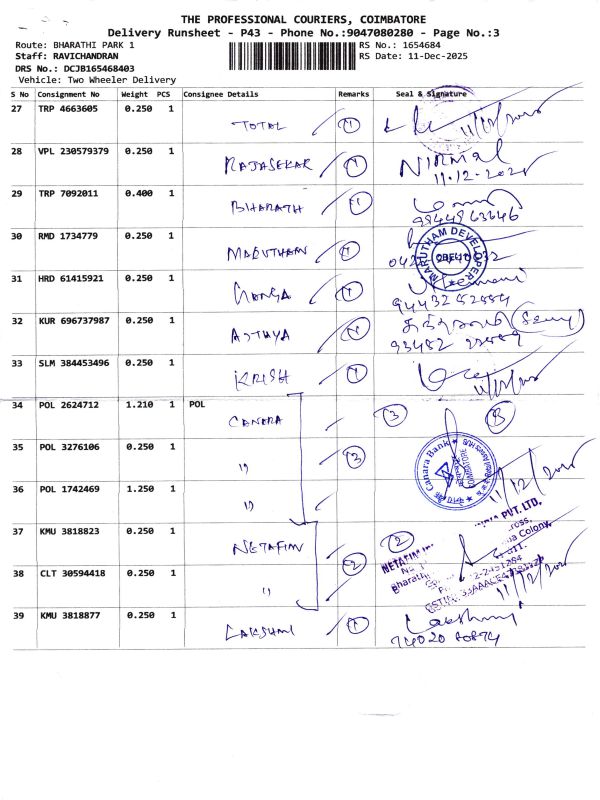 THE PROFESSIONAL COURIERS, COIMBATORE
Delivery Runsheet - P43 - Phone No.:9047080280 - Page No.:3
Route: BHARATHI PARK 1
RS No.: 1654684
Staff: RAVICHANDRAN
RS Date: 11-Dec-2025
DRS No.: DCJB165468403
Vehicle: Two Wheeler Delivery
S No Consignment No Weight PCS Consignee Details Remarks Seal & Signature
27 TRP 4663605 0.250 1
TOTAL 1
28 VPL 230579379 0.250 1
RAJASEKAR 1 NIRMAL
11.12.2025
29 TRP 7092011 0.400 1
BHARATH 1
30 RMD 1734779 0.250 1
MARUTHAM 1 MARUTHAM DEVELOPER
31 HRD 61415921 0.250 1
GANGA 1
94432 52884
32 KUR 696737987 0.250 1
1
33 SLM 384453496 0.250 1
KRISH 1
34 POL 2624712 1.210 1 POL
CANARA 3
35 POL 3276106 0.250 1
11 3 Canara Bank
36 POL 1742469 1.250 1
11 11/12/2025
37 KMU 3818823 0.250 1
NETAFIM 2
38 CLT 30594418 0.250 1
11 2
39 KMU 3818877 0.250 1
LAKSHMI 1 Lakshmi